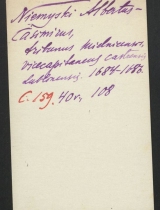 Niemyski Albertus-
Casimirus,
tribunus mielnicensis,
vicecapitaneus castrensis
Lublinensis 1684-1686.
C. 159, 40v, 108